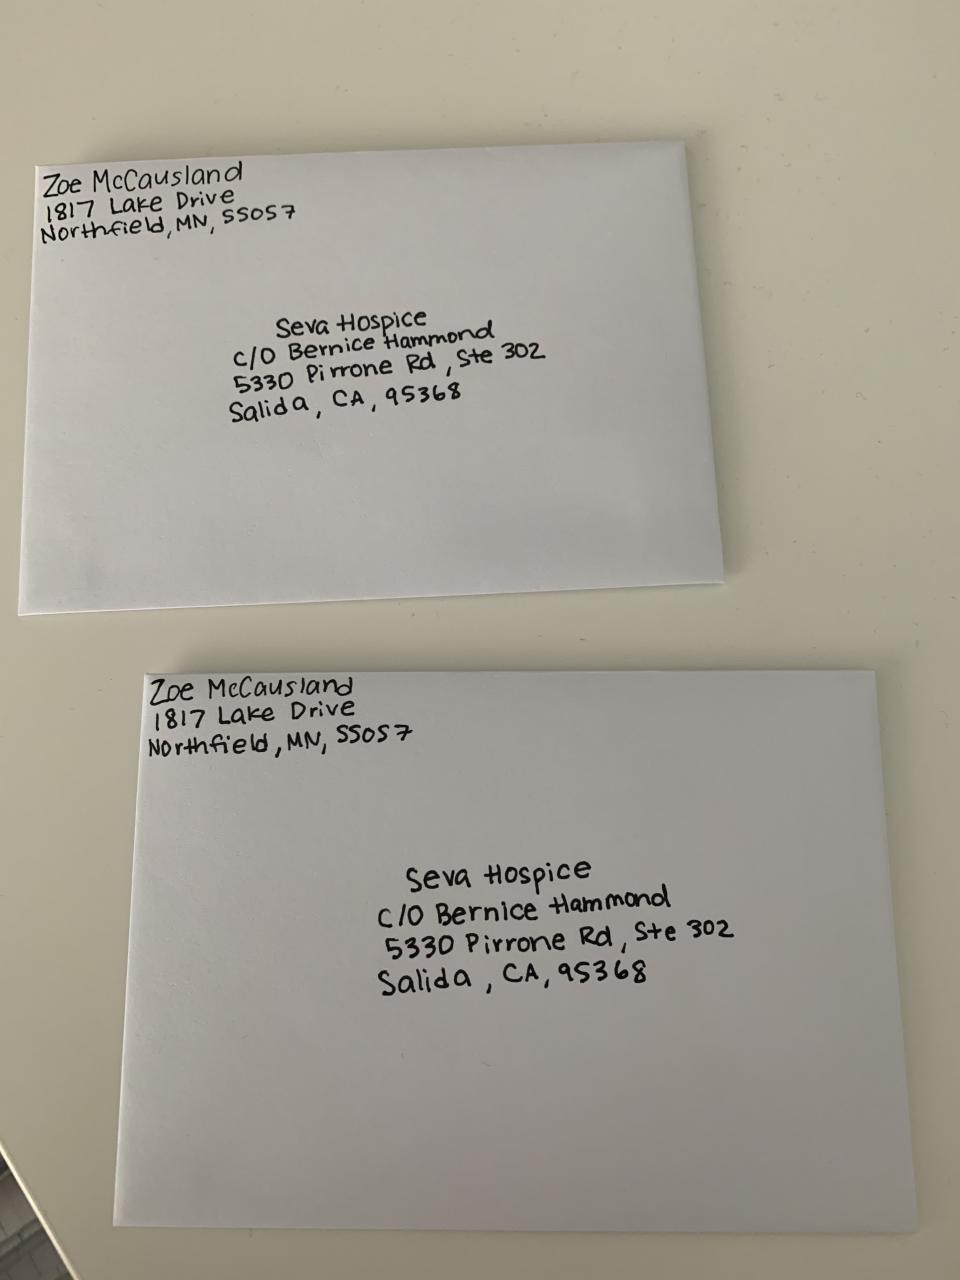 Zoe McCausland
1817 Lake Drive
Northfield, MN, 55057
Seva Hospice
C/O Bernice Hammond
5330 Pirrone Rd, Ste 302
Salida, CA, 95368
Zoe McCausland
1817 Lake Drive
Northfield, MN, 55057
Seva Hospice
C/O Bernice Hammond
5330 Pirrone Rd, Ste 302
Salida, CA, 95368